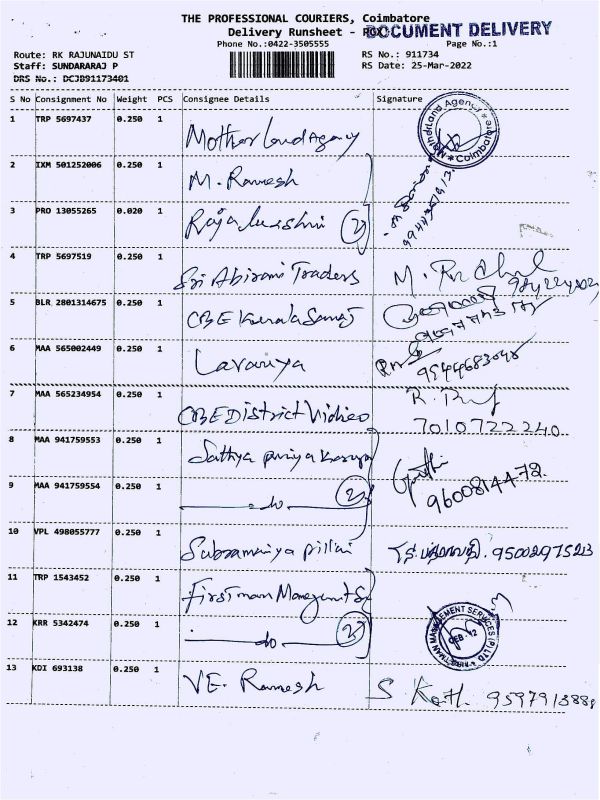 THE PROFESSIONAL COURIERS, Coimbatore
Delivery Runsheet - DOCUMENT DELIVERY
Phone No.:0422-3505555 Page No.:1
Route: RK RAJUNAIDU ST RS No.: 911734
Staff: SUNDARARAJ P RS Date: 25-Mar-2022
DRS No.: DCJB91173401
S No Consignment No Weight PCS Consignee Details Signature
1 TRP 5697437 0.250 1 Motherland Agency
Motherland Agency * Coimbatore *
2 IXM 501252006 0.250 1 M. Ramesh
3 PRO 13055265 0.020 1 Raja lakshmi 2
4 TRP 5697519 0.250 1 Sri Abirami Traders M.
5 BLR 2801314675 0.250 1 CBE Kerala Samaj
6 MAA 565002449 0.250 1 Lavanya 9544683048
7 MAA 565234954 0.250 1 CBE District R.
7010722240
8 MAA 941759553 0.250 1 Sathya priya
9 MAA 941759554 0.250 1 do 2 9600814472.
10 VPL 498055777 0.250 1 Subramaniya pillai 9500297523
11 TRP 1543452 0.250 1 Firstman
12 KRR 5342474 0.250 1 do 2
FIRSTMAN MANAGEMENT SERVICES (P) LTD
CBE-12
13 KDI 693138 0.250 1 VE. Ramesh S